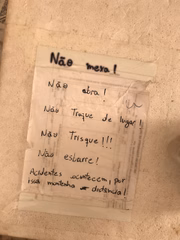 Não mexa!
Não abra!
Não Troque de lugar!
Não Trisque!!!
Não esbarre!
Acidentes acontecem, por
isso mantenha a distância!